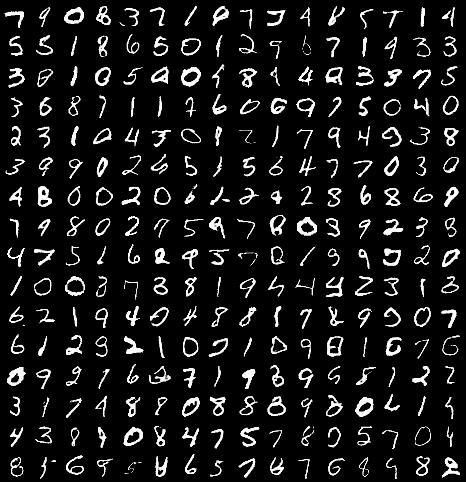 7 9 0 8 3 7 1 9 7 5 4 8 5 7 1 4
5 5 1 8 6 5 0 1 2 9 6 7 1 9 3 3
3 8 1 0 5 0 0 9 8 4 4 9 3 3 7 5
3 6 8 7 1 1 7 6 0 6 9 7 5 0 4 0
2 3 1 0 4 3 0 1 2 1 7 9 4 9 3 8
3 9 9 0 2 6 5 1 5 6 4 7 7 0 3 0
4 8 0 0 2 0 6 1 2 9 2 8 6 8 6 9
7 9 8 0 2 7 5 9 7 8 0 3 9 2 3 8
4 7 5 1 6 2 9 5 7 0 1 9 9 5 2 0
1 0 0 3 7 3 8 1 9 4 4 9 2 3 1 3
6 2 1 9 4 0 4 8 8 1 7 8 9 9 0 7
6 1 2 9 2 1 0 5 1 0 9 8 1 6 7 6
0 9 2 7 6 2 7 1 9 3 9 6 8 1 2 2
3 1 7 4 8 8 0 8 8 8 9 8 0 6 1 9
4 3 8 9 0 8 4 7 5 7 8 0 5 7 0 4
8 5 6 9 5 8 6 5 7 6 7 6 8 9 8 2